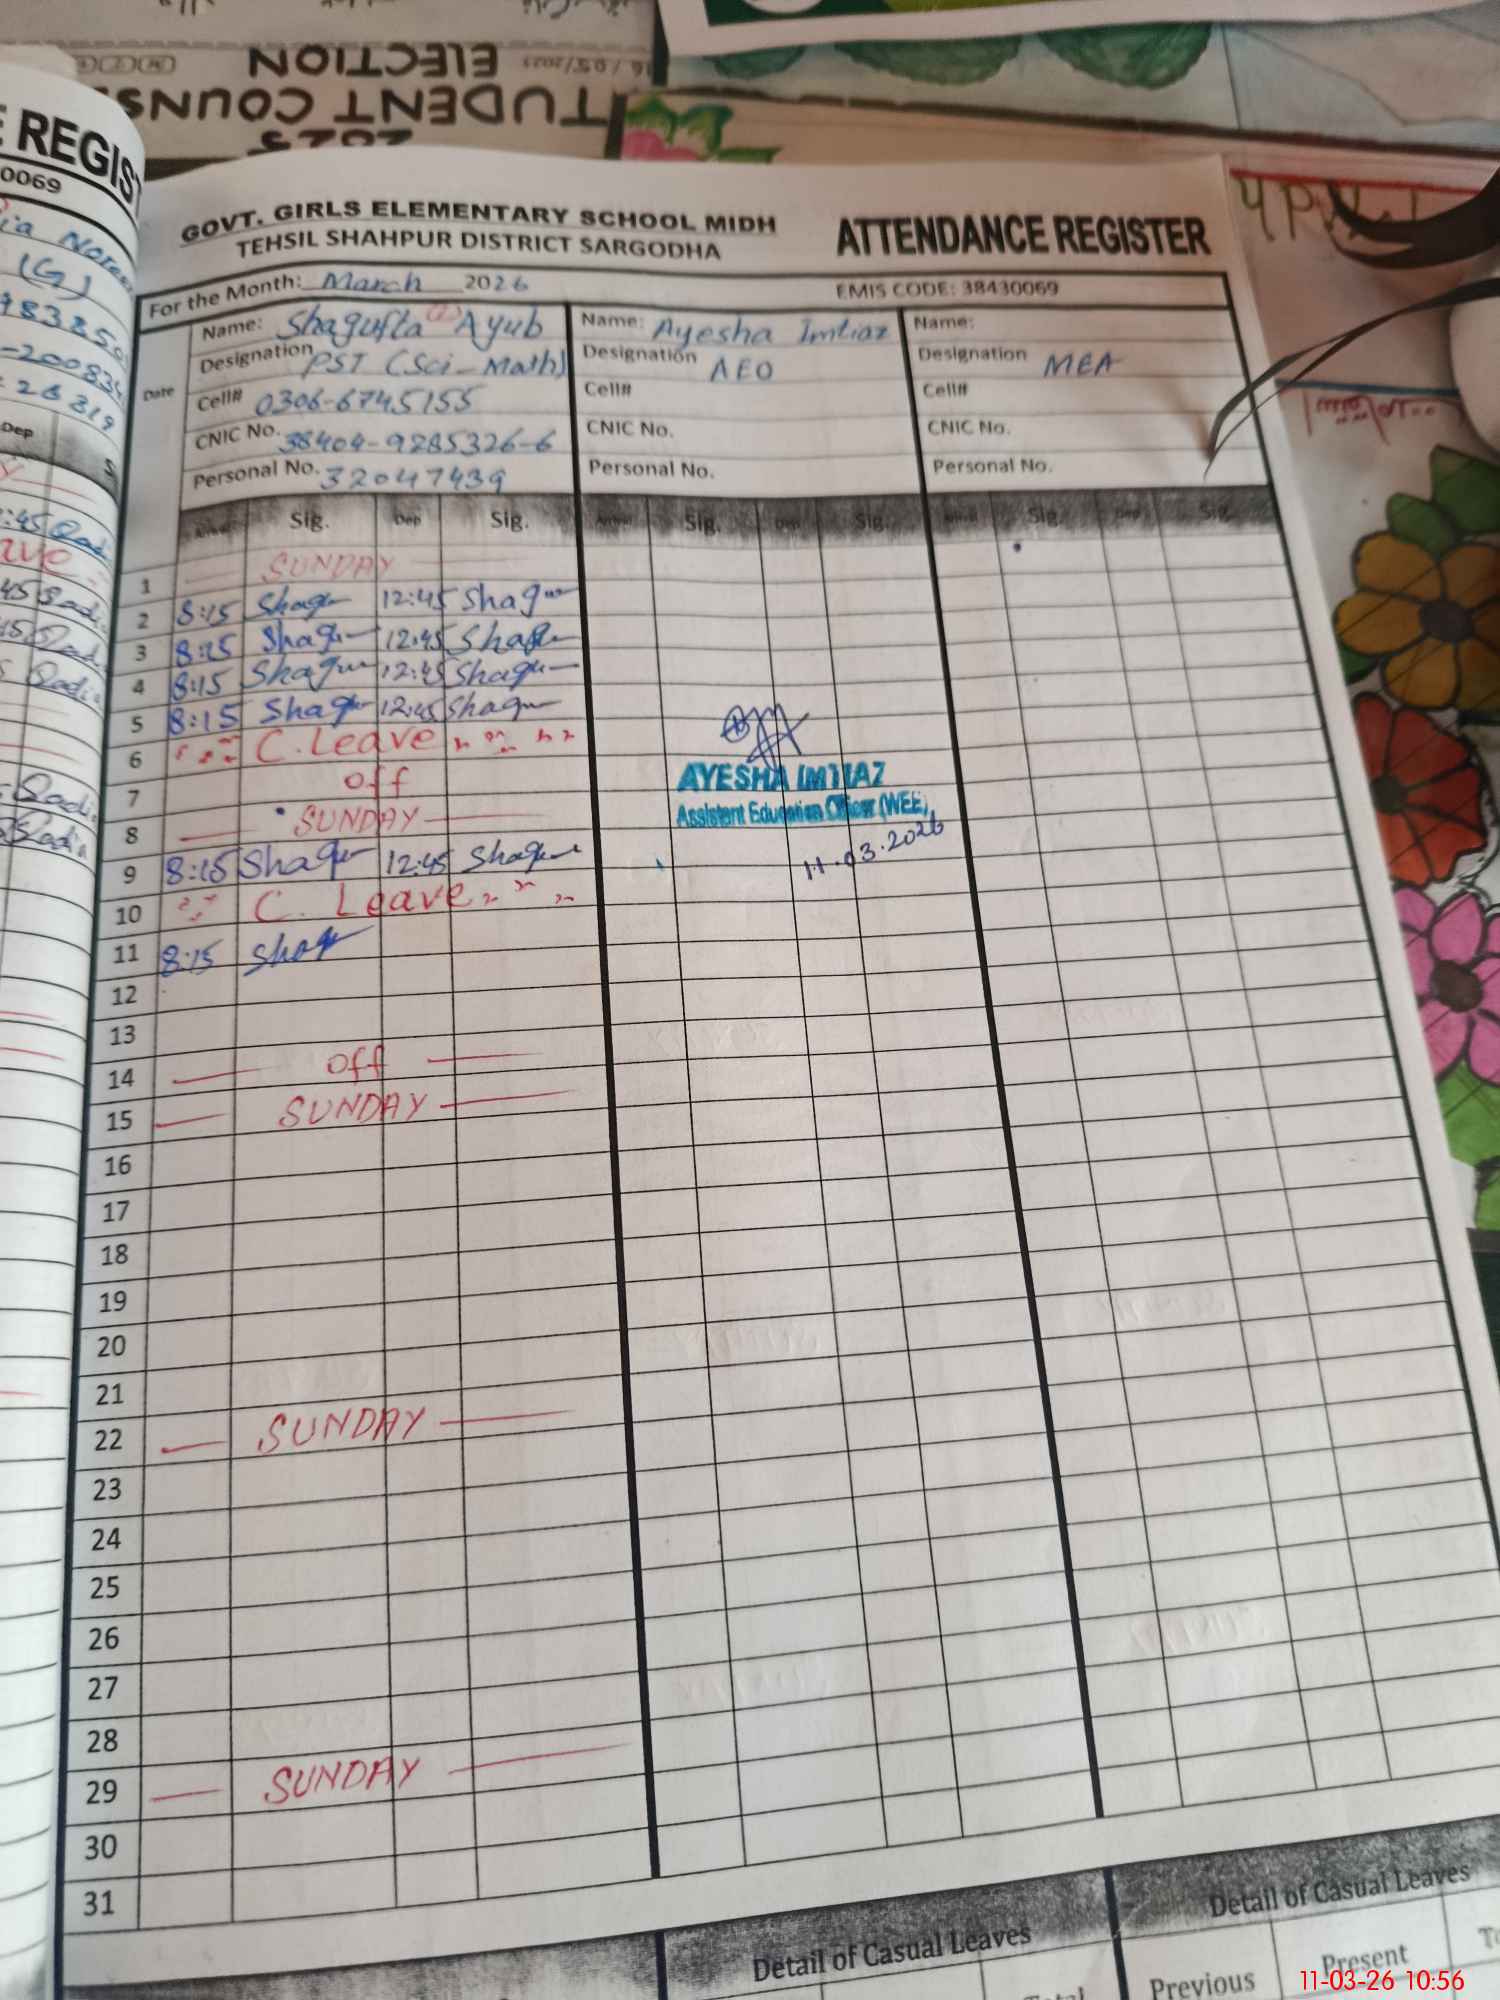 ELECTION
16/05/2025
STUDENT COUNS
2025
E REGIST
0069
(G)
Dep
GOVT. GIRLS ELEMENTARY SCHOOL MIDH
TEHSIL SHAHPUR DISTRICT SARGODHA
ATTENDANCE REGISTER
For the Month: March 2026
EMIS CODE: 38430069
Date
Name: Shagufta Ayub
Designation PST (Sci-Math)
Cell# 0306-6745155
CNIC No. 38404-9285326-6
Personal No. 32047439
Name: Ayesha Imtiaz
Designation AEO
Cell#
CNIC No.
Personal No.
Name:
Designation MEA
Cell#
CNIC No.
Personal No.
Arrival Sig. Dep Sig. Arrival Sig. Dep Sig. Arrival Sig. Dep Sig.
1 SUNDAY
2 8:15 Shagu 12:45 Shagu
3 8:15 Shagu 12:45 Shagu
4 8:15 Shagu 12:45 Shagu
5 8:15 Shagu 12:45 Shagu
6 C. Leave
7 off
8 SUNDAY
9 8:15 Shagu 12:45 Shagu
10 C. Leave
11 8:15 Shagu
12
13
14 off
15 SUNDAY
16
17
18
19
20
21
22 SUNDAY
23
24
25
26
27
28
29 SUNDAY
30
31
AYESHA IMTIAZ
Assistent Education Officer (WEE)
11.03.2026
Detail of Casual Leaves
Total
Detail of Casual Leaves
Previous Present To
11-03-26 10:56